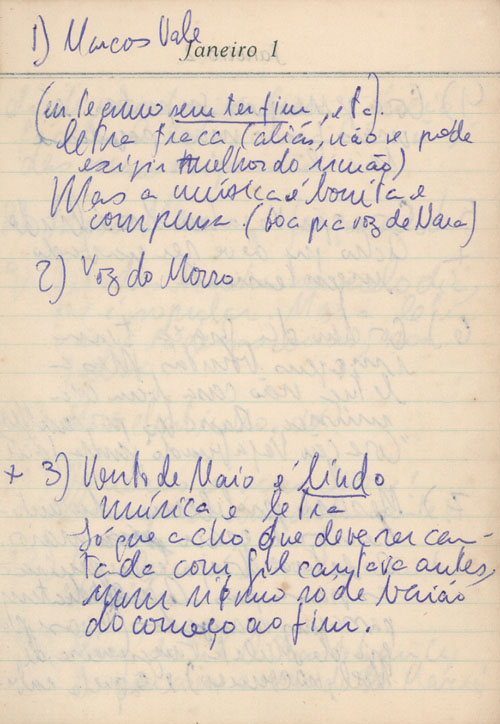 1) Marcos Vale
Janeiro 1
sem ter fim, etc).
letra fraca (aliás, não se pode
exigir melhor do irmão)
Mas a música é bonita e
compensa (boa pra voz de Nara)
2) Voz do Morro
+ 3) Vento de Maio é lindo
música e letra
Só que acho que deve ser can-
tada com Gil cantava antes,
num ritmo só de baião
do começo ao fim.